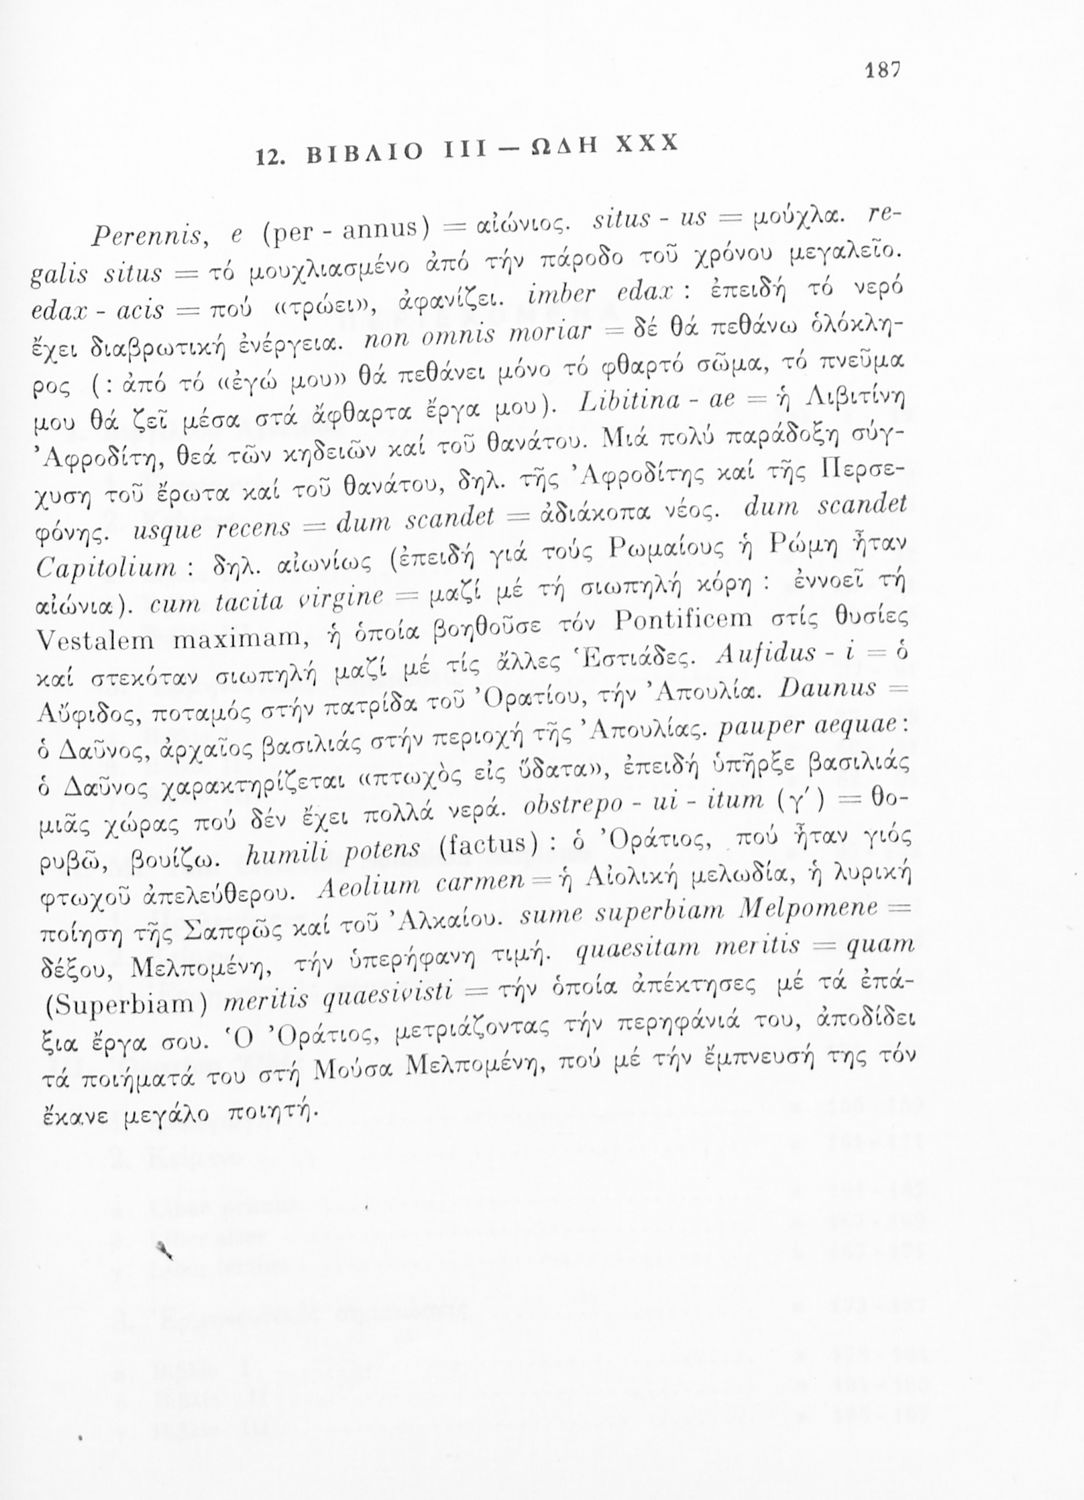 187
12. ΒΙΒΛΙΟ III — ΩΔΗ XXX
Perennis, e (per - annus) = αἰώνιος. situs - us = μούχλα. re-
galis situs = τό μουχλιασμένο ἀπό τήν πάροδο τοῦ χρόνου μεγαλεῖο.
edax - acis = πού «τρώει», ἀφανίζει. imber edax : ἐπειδή τό νερό
ἔχει διαβρωτική ἐνέργεια. non omnis moriar = δέ θά πεθάνω ὁλόκλη-
ρος (: ἀπό τό «ἐγώ μου» θά πεθάνει μόνο τό φθαρτό σῶμα, τό πνεῦμα
μου θά ζεῖ μέσα στά ἄφθαρτα ἔργα μου). Libitina - ae = ἡ Λιβιτίνη
Ἀφροδίτη, θεά τῶν κηδειῶν καί τοῦ θανάτου. Μιά πολύ παράδοξη σύγ-
χυση τοῦ ἔρωτα καί τοῦ θανάτου, δηλ. τῆς Ἀφροδίτης καί τῆς Περσε-
φόνης. usque recens = dum scandet = ἀδιάκοπα νέος. dum scandet
Capitolium : δηλ. αἰωνίως (ἐπειδή γιά τούς Ρωμαίους ἡ Ρώμη ἦταν
αἰώνια). cum tacita virgine = μαζί μέ τή σιωπηλή κόρη : ἐννοεῖ τή
Vestalem maximam, ἡ ὁποία βοηθοῦσε τόν Pontificem στίς θυσίες
καί στεκόταν σιωπηλή μαζί μέ τίς ἄλλες Ἑστιάδες. Aufidus - i = ὁ
Αὔφιδος, ποταμός στήν πατρίδα τοῦ Ὀρατίου, τήν Ἀπουλία. Daunus =
ὁ Δαῦνος, ἀρχαῖος βασιλιάς στήν περιοχή τῆς Ἀπουλίας. pauper aequae :
ὁ Δαῦνος χαρακτηρίζεται «πτωχὸς εἰς ὕδατα», ἐπειδή ὑπῆρξε βασιλιάς
μιᾶς χώρας πού δέν ἔχει πολλά νερά. obstrepo - ui - itum (γ΄) = θο-
ρυβῶ, βουίζω. humili potens (factus) : ὁ Ὀράτιος, πού ἦταν γιός
φτωχοῦ ἀπελεύθερου. Aeolium carmen = ἡ Αἰολική μελωδία, ἡ λυρική
ποίηση τῆς Σαπφῶς καί τοῦ Ἀλκαίου. sume superbiam Melpomene =
δέξου, Μελπομένη, τήν ὑπερήφανη τιμή. quaesitam meritis = quam
(Superbiam) meritis quaesivisti = τήν ὁποία ἀπέκτησες μέ τά ἐπά-
ξια ἔργα σου. Ὁ Ὀράτιος, μετριάζοντας τήν περηφάνιά του, ἀποδίδει
τά ποιήματά του στή Μούσα Μελπομένη, πού μέ τήν ἔμπνευσή της τόν
ἔκανε μεγάλο ποιητή.